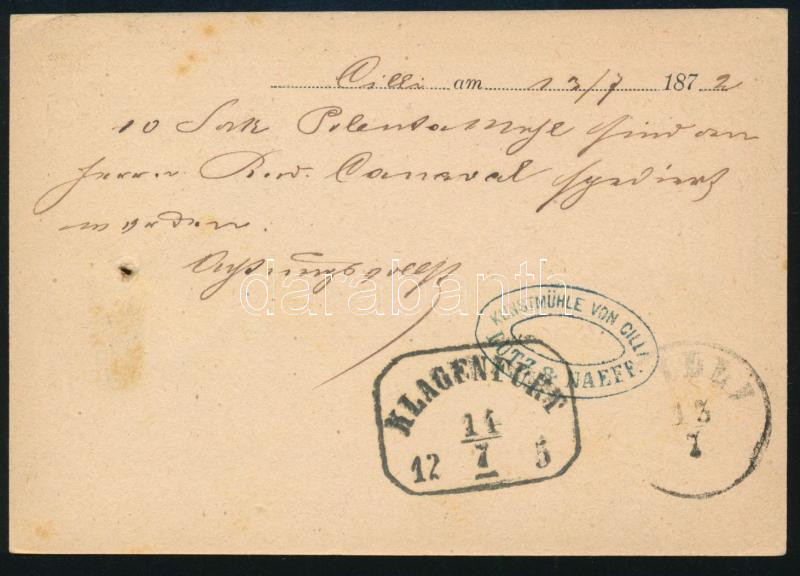 Cilli am 13/7 1872
10 Sack Polenta Mehl sind an
Herrn Rud. Canaval spediert
worden.
Achtungsvollst
darabanth
KUNSTMÜHLE VON CILLI
LUTZ & NAEFF.
KLAGENFURT
14
12 7 5
CILLI
13
7